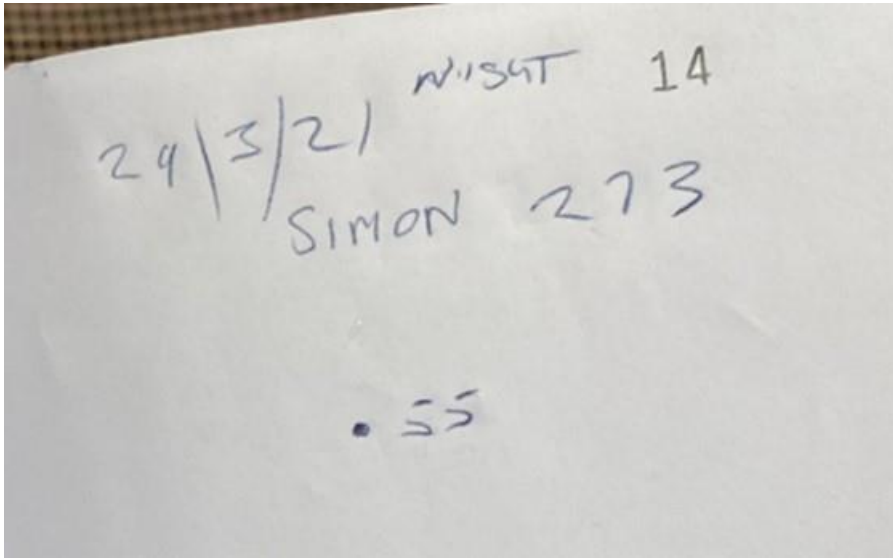 NIISGT 14
24/3/21
SIMON 273
.55